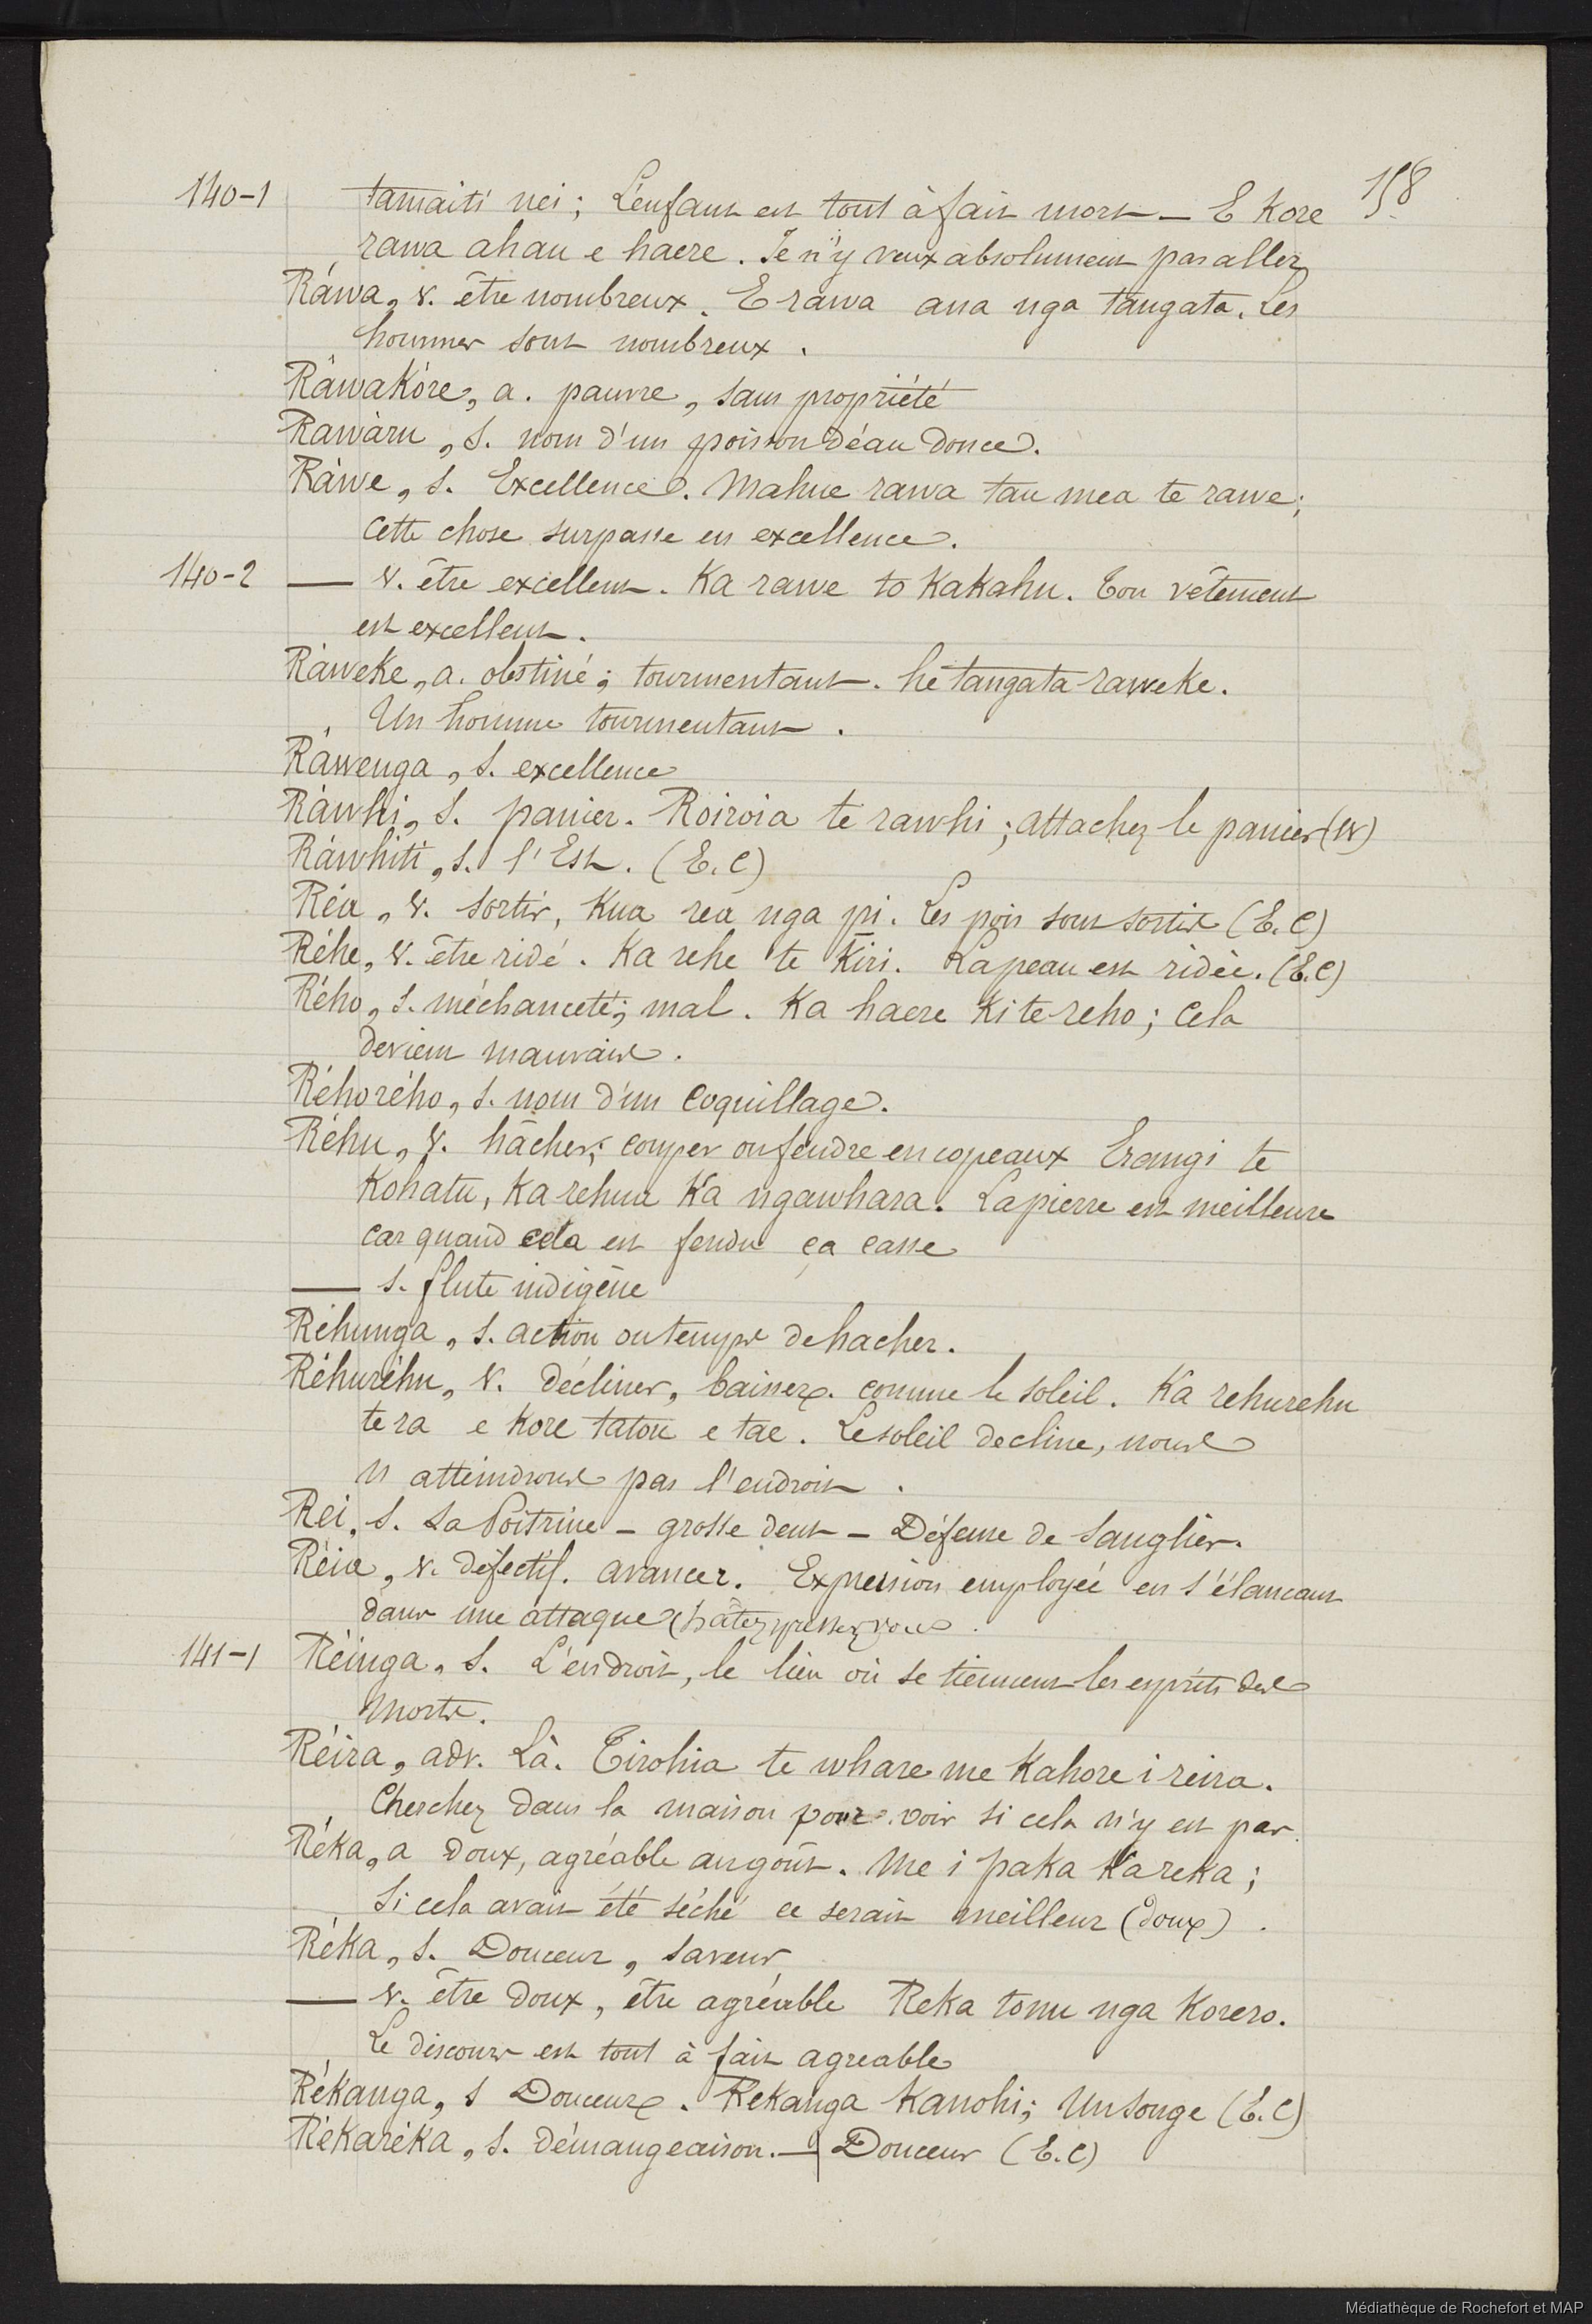 158
140-1 tamaiti nei; L'enfant est tout à fait mort — E Kore
rawa ahau e haere. Je n'y veux absolument pas aller
Ráwa, v. être nombreux. E rawa ana nga tangata. Les
hommes sont nombreux.
RáwaKóre, a. pauvre, sans propriété
Rawàru, s. nom d'un poisson d'eau douce.
Ràwe, s. Excellence. Mahue rawa tau mea te rawe;
Cette chose surpasse en excellence.
140-2 — v. être excellent. Ka rawe to KaKahu. Ton vêtement
est excellent.
RàweKe, a. obstiné; tourmentant. he tangata raweKe.
Un homme tourmentant.
Ráwenga, s. excellence
Ràwhi, s. panier. Roiroia te rawhi; attachez le panier (W)
Ráwhiti, s. l'Est. (E.C)
Réa, v. sortir, Kua rea nga pi. Les pois sont sortis (E.C)
Réhe, v. être ridé. Ka rehe te Kiri. La peau est ridée. (E.C)
Rého, s. méchanceté; mal. Ka haere Ki te reho; Cela
devient mauvais.
Réhorého, s. nom d'un Coquillage.
Réhu, v. hâcher; couper ou fendre en copeaux Erangi te
Kohatu, Ka rehua Ka ngawhara. La pierre est meilleure
car quand cela est fendu ça casse
— s. flute indigène
Réhunga, s. action ou temps de hacher.
Réhuréhu, v. décliner, baisser. comme le soleil. Ka rehurehu
te ra e Kore tatou e tae. Le soleil decline, nous
n atteindrons pas l'endroit.
Rei, s. La Poitrine — grosse dent — Défense de Sanglier.
Réia, v. défectif. avancer. Expression employée en s'élancant
dans une attaque (hâtez, pressez vous.
141-1 Réinga, s. L'endroit, le lieu où se tiennent les esprits des
Morts.
Réira, adv. Là. Tirohia te whare me Kahore i reira.
Cherchez dans la maison pour voir si cela n'y est pas.
RéKa, a doux, agréable au goût. Me i paka Ka reKa;
Si cela avait été séché ce serait meilleur (doux).
RéKa, s. Douceur, saveur
— v. être doux, être agréable ReKa tonu nga Korero.
Le discours est tout à fait agreable
RéKanga, s Douceur. ReKanga Kanohi; Un songe (E.C)
RéKaréKa, s. démangeaison. — Douceur (E.C)
Médiathèque de Rochefort et MAP